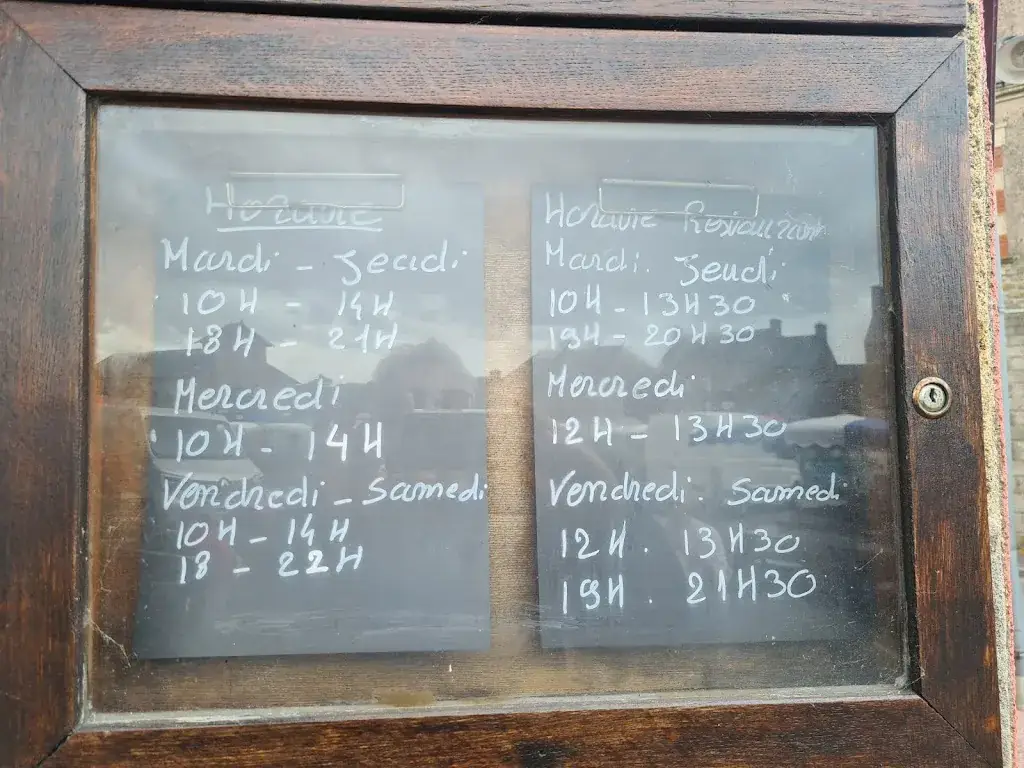 Horaire
Mardi - Jeudi
10H - 14H
18H - 21H
Mercredi
10H - 14H
Vendredi - Samedi
10H - 14H
18 - 22H
Horaire Restaurant
Mardi. Jeudi
10H - 13H30
19H - 20H30
Mercredi
12H - 13H30
Vendredi. Samedi
12H. 13H30
19H. 21H30